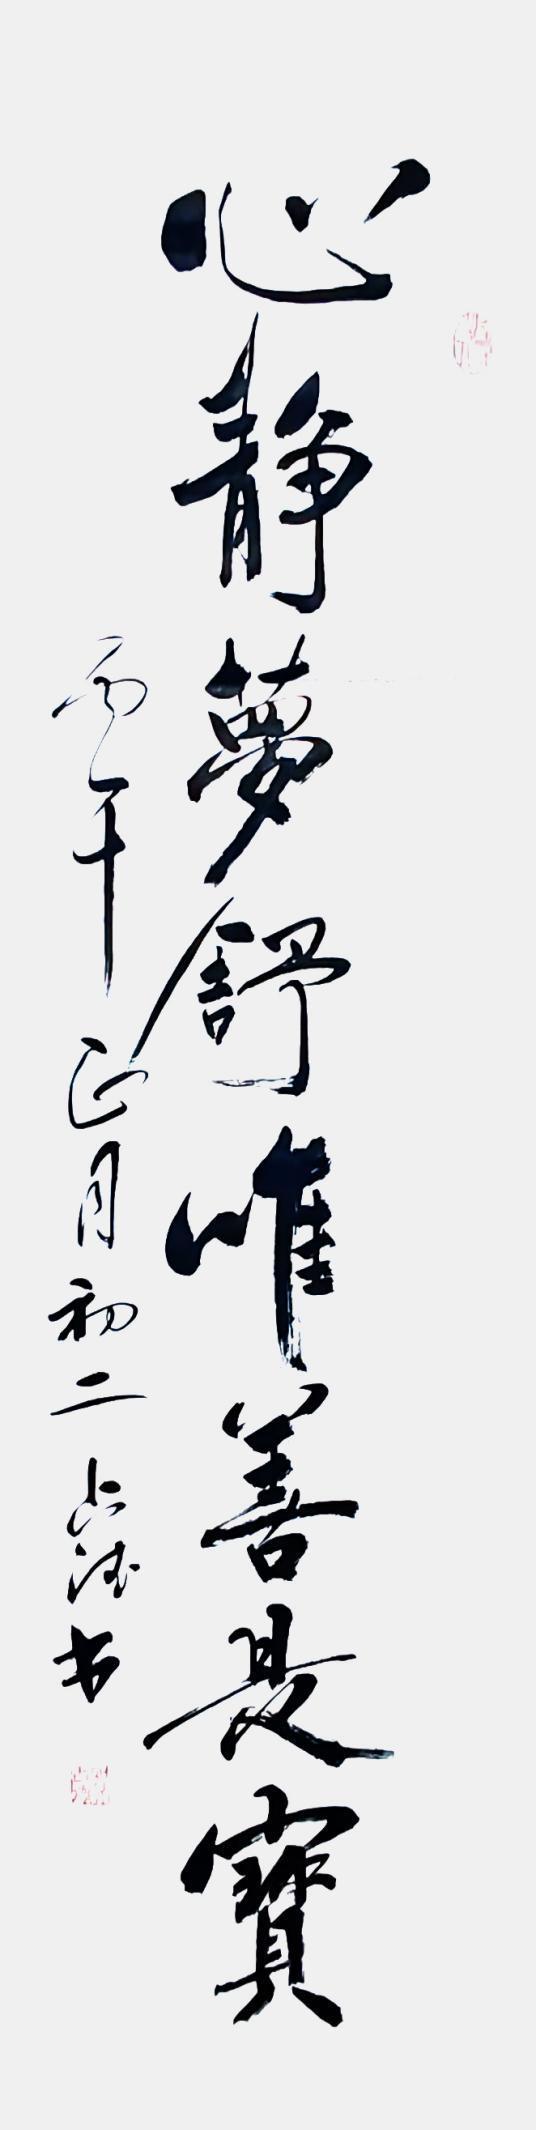 心靜夢舒唯善是寶
丙午正月初二 占涛书